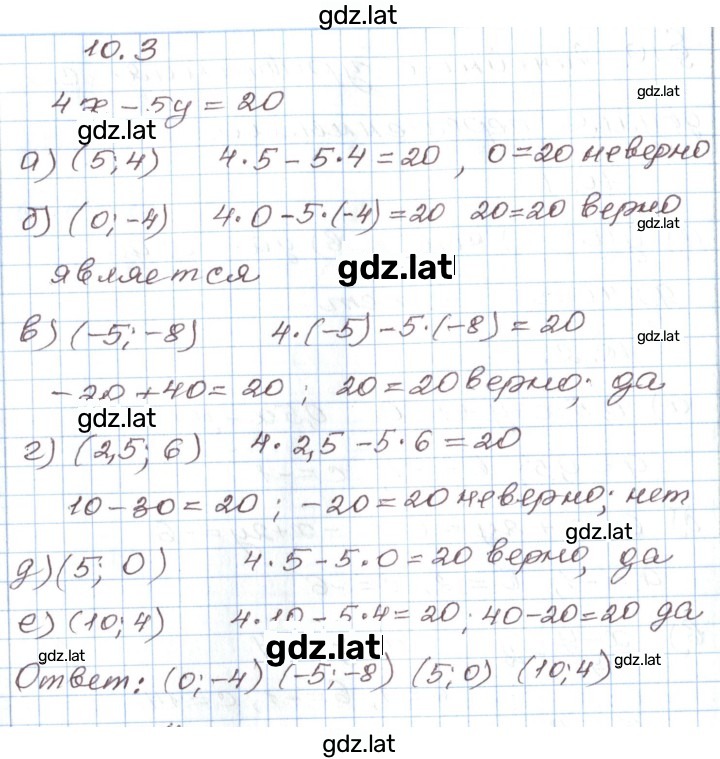 gdz.lat
10.3
4x - 5y = 20
gdz.lat
gdz.lat
а) (5; 4) 4·5 - 5·4 = 20, 0=20 неверно
б) (0; -4) 4·0 - 5·(-4) = 20 20=20 верно
gdz.lat
является
gdz.lat
в) (-5; -8) 4·(-5) - 5·(-8) = 20
gdz.lat
-20 + 40 = 20; 20 = 20 верно; да
gdz.lat
г) (2,5; 6) 4·2,5 - 5·6 = 20
10 - 30 = 20; -20 = 20 неверно; нет
gdz.lat
д) (5; 0) 4·5 - 5·0 = 20 верно, да
е) (10; 4) 4·10 - 5·4 = 20; 40-20=20 да
gdz.lat
gdz.lat
gdz.lat
Ответ: (0; -4) (-5; -8) (5; 0) (10; 4)
gdz.lat